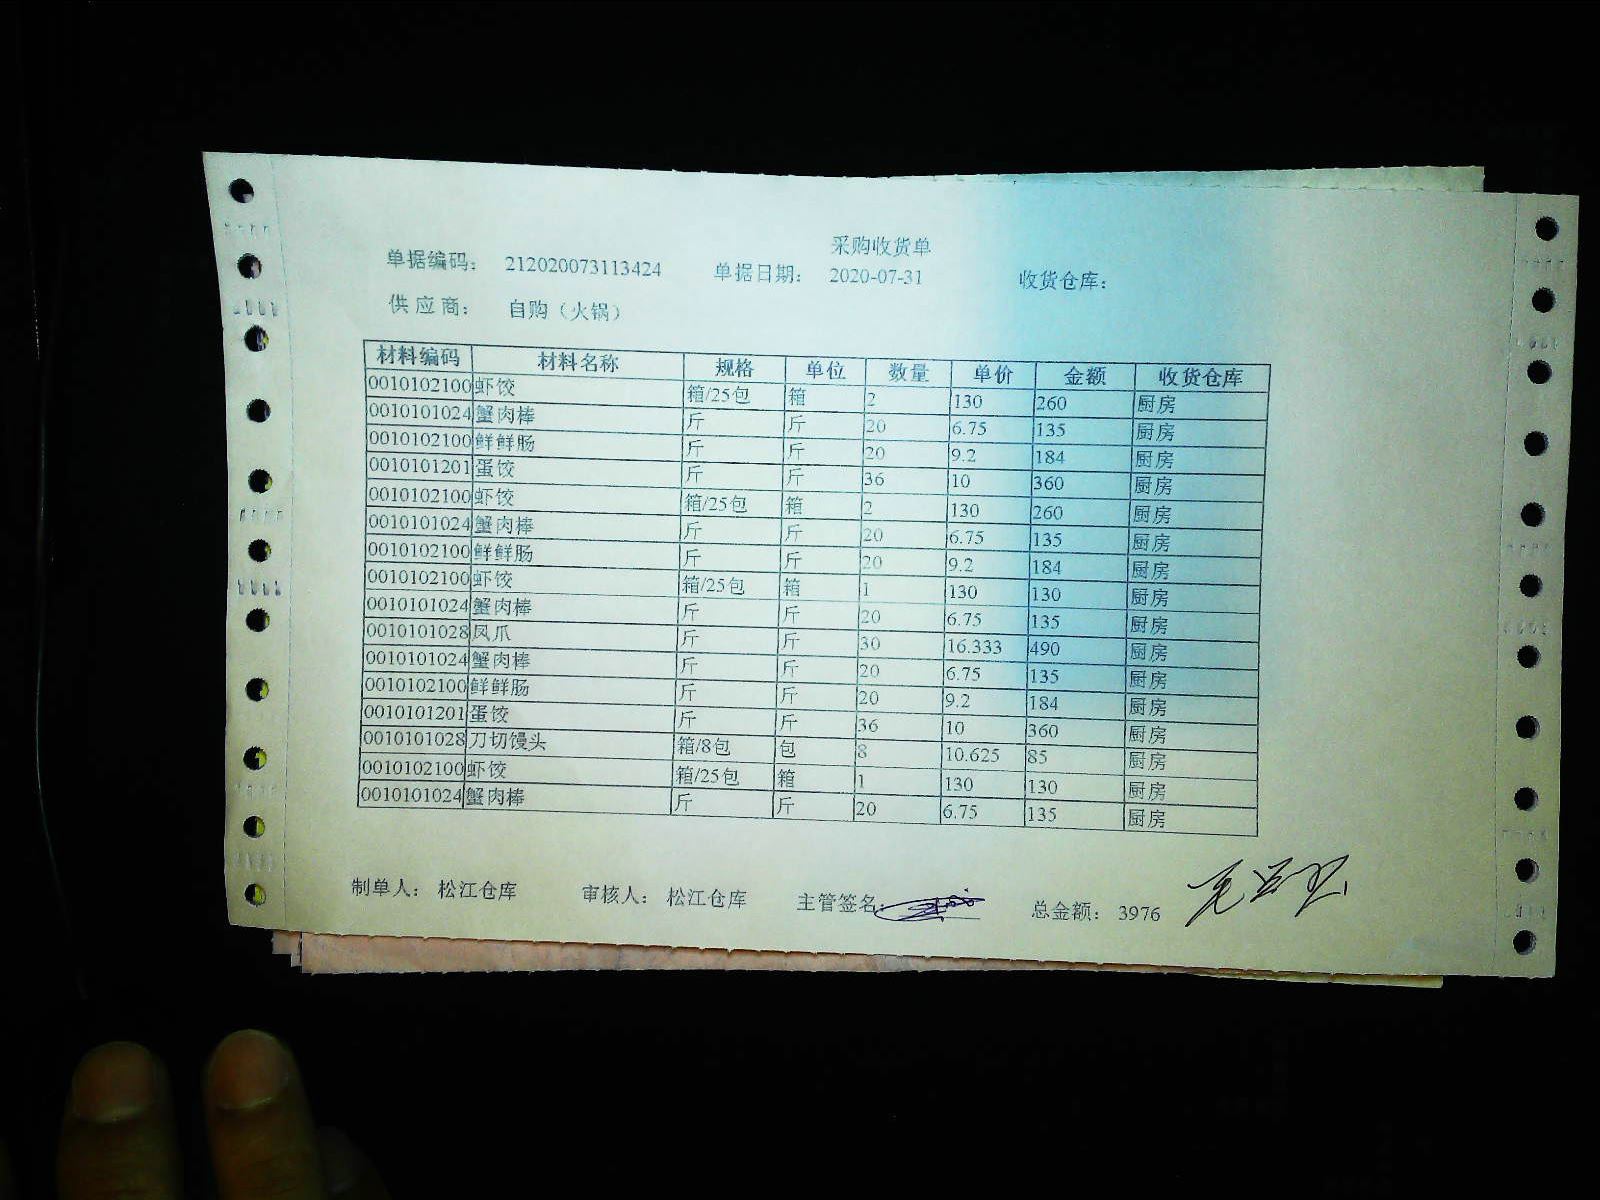 采购收货单
单据编码： 212020073113424 单据日期： 2020-07-31 收货仓库：
供应商： 自购（火锅）
材料编码 材料名称 规格 单位 数量 单价 金额 收货仓库
0010102100 虾饺 箱/25包 箱 2 130 260 厨房
0010101024 蟹肉棒 斤 斤 20 6.75 135 厨房
0010102100 鲜鲜肠 斤 斤 20 9.2 184 厨房
0010101201 蛋饺 斤 斤 36 10 360 厨房
0010102100 虾饺 箱/25包 箱 2 130 260 厨房
0010101024 蟹肉棒 斤 斤 20 6.75 135 厨房
0010102100 鲜鲜肠 斤 斤 20 9.2 184 厨房
0010102100 虾饺 箱/25包 箱 1 130 130 厨房
0010101024 蟹肉棒 斤 斤 20 6.75 135 厨房
0010101028 凤爪 斤 斤 30 16.333 490 厨房
0010101024 蟹肉棒 斤 斤 20 6.75 135 厨房
0010102100 鲜鲜肠 斤 斤 20 9.2 184 厨房
0010101201 蛋饺 斤 斤 36 10 360 厨房
0010101028 刀切馒头 箱/8包 包 8 10.625 85 厨房
0010102100 虾饺 箱/25包 箱 1 130 130 厨房
0010101024 蟹肉棒 斤 斤 20 6.75 135 厨房
制单人： 松江仓库 审核人： 松江仓库 主管签名： 总金额： 3976